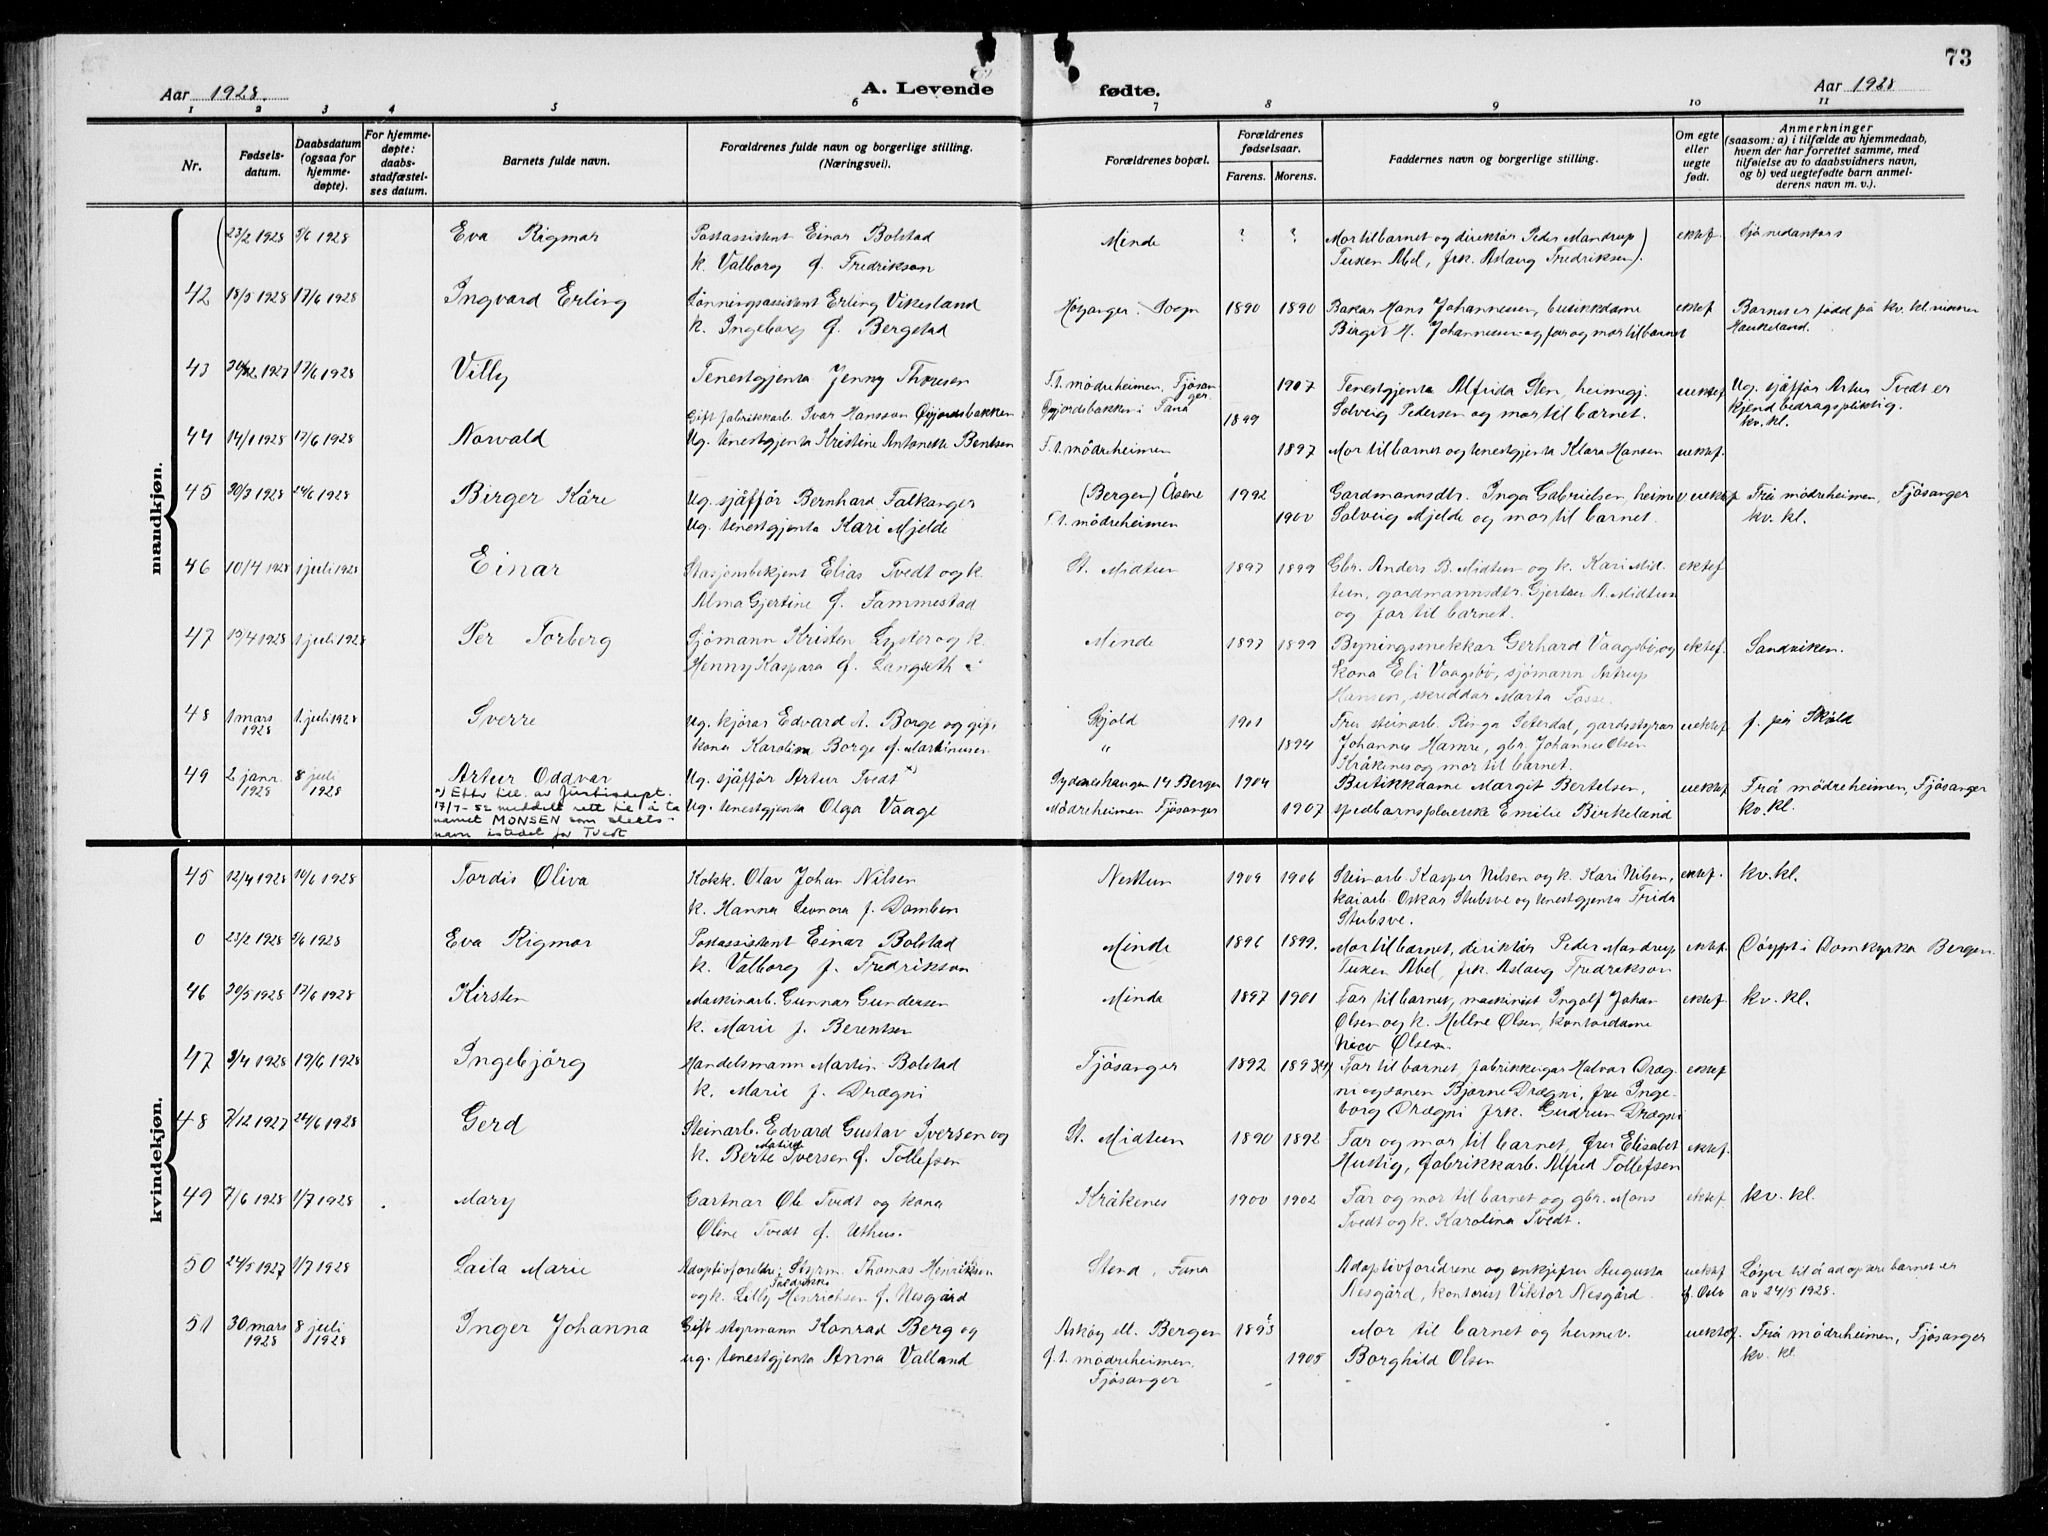 73
Aar 1928.
A. Levende
fødte.
Aar 1928
1 2 3 4 5 6 7 8 9 10 11
Nr.
Fødsels-
datum.
Daabsdatum
(ogsaa for
hjemme-
døpte).
For hjemme-
døpte:
daabs-
stadfæstel-
ses datum.
Barnets fulde navn.
Forældrenes fulde navn og borgerlige stilling.
(Næringsvei).
Forældrenes bopæl.
Forældrenes
fødselsaar.
Farens. Morens.
Faddernes navn og borgerlige stilling.
Om egte
eller
uegte
født.
Anmerkninger
(saasom: a) i tilfælde av hjemmedaab,
hvem der har forrettet samme, med
tilføielse av to daabsvidners navn,
og b) ved uegtefødte barn anmel-
derens navn m. v.).
mandkjøn.
(23/2 1928 5/6 1928 Eva Rigmor Postassistent Einar Bolstad Minde ? ? Mor til barnet og direktør Peder Mandrup ektef.
k. Valborg f. Fredrikson Tuxen Abel, frk. Aslaug Fredriksen).
42 18/5 1928 17/6 1928 Ingvard Erling Lønningsassistent Erling Vikesland Høyanger, Sogn 1890 1890 Bakar Hans Johannesen, butikkdame ektef Barnet er fødd på kv. kl.
k. Ingeborg f. Bergstad Birgit H. Johannesen og far og mor til barnet Haukeland.
43 1927 17/6 1928 Villy Tenestgjenta Jenny Thoresen F.t. mödreheimen, Fjösanger 1907 Tenestgjenta Alfrida Sten, heimegj. uektef Ug. sjåffør Artur Tvedt er
Solveig Pedersen og mor til barnet. kjend bedragspliktig.
kv. kl.
Gift fabrikkarb. Ivar Hansson Øyjordsbakken Øyjordsbakken i Fana 1899
44 14/1 1928 17/6 1928 Norvald Ug. tenestgjenta Kristine Antonette Bentsen F.t. mödreheimen 1897 Mor til barnet og tenestgjenta Klara Hansen uektef.
45 30/3 1928 24/6 1928 Birger Kåre Ug. sjåffør Bernhard Falkanger (Bergen) Åsene 1992 Gardmannsdtr. Inga Gabrielsen, heimev uektef Frå mödreheimen, Fjösanger
Ug. tenestgjenta Kari Mjelde F.t. mödreheimen 1900 Solveig Mjelde og mor til barnet. kv. kl.
46 10/4 1928 1 juli 1928 Einar Stasjonsbekjent Elias Tvedt og k. St. Midtun 1897 1899 Gbr. Anders B. Midtun og k. Kari Mid- ektef
Alma Gjertine f. Tammestad tun, gardmannsdtr. Gjertine A. Midtun
og far til barnet.
47 19/4 1928 1 juli 1928 Per Torberg Sjömann Kristen Lyster og k. Minde 1897 1899 Bygningssnekkar Gerhard Vaagsbø, og ektef. Sandviken.
Henny Kaspara f. Langseth kona Eli Vaagsbø, sjömann Astrup
Hansen, skreddar Marta Fosse.
48 1 mars 1. juli 1928 Sverre Ug. kjörar Edvard A. Borge og gift Skjold 1901 Fru steinarb. Ringa Seterdal, gardsstyrar uektef f. på Skjöld
1928 kona Karoline Borge f. Martinusen " 1894 Johannes Hamre, gbr. Johannes Olsen
Kråkenes og mor til barnet.
49 2 janr. 8 juli Artur Oddvar Ug. sjåffør Artur Tvedt*) Sydneshaugen 14 Bergen 1904 Butikkdame Margit Bertelsen, uektef Frå mödreheimen, Fjösanger
1928 1928 Ug. tenestgjenta Olga Vaage Mödreheimen Fjösanger 1907 spedbarnspleierske Emilie Birkeland kv. kl.
*) Etter till. av Justisdept.
17/7-52 meddelt rett til å ta
namet MONSEN som slekts-
navn istedet for Tvedt
kvindekjøn.
45 12/4 1928 10/6 1928 Tordis Oliva Kokk. Olav Johan Nilsen Nesttun 1909 1906 Steinarb. Kasper Nilsen og k. Kari Nilsen, ektef. kv. kl.
k. Hanna Leonora f. Domben kaiarb. Oskar Stubsve og tenestgjenta Frida
Stubsve.
0 23/2 1928 5/6 1928 Eva Rigmor Postassistent Einar Bolstad Minde 1896 1899. Mor til barnet, direktør Peder Mandrup ektef. Döypt i Domkyrka Bergen.
k. Valborg f. Fredrikson Tuxen Abel, frk. Aslaug Fredrikson
46 20/5 1928 17/6 1928 Kirsten Maskinarb. Gunnar Gundersen Minda 1897 1901 Far til barnet, maskinist Ingolf Johan ektef. kv. kl.
k. Marie f. Berentsen Olsen og k. Hellne Olsen, kontordame
Nico Olsen.
47 3/4 1928 19/6 1928 Ingebjörg Handelsmann Martin Bolstad Fjösanger 1892 1893(4) Far til barnet, fabrikkeigar Halvar Dræg- ektef
k. Marie f. Drægni ni og sonen Bjarne Drægni, fru Inge-
borg Drægni frk. Gudrun Drægni
48 7/12 1927 24/6 1928 Gerd Steinarb. Edvard Gustav Iversen og St. Midtun 1890 1892 Far og mor til barnet, fru Elisabet ektef.
k. Berte Matilde Iversen f. Tollefsen Hustig, fabrikkarb. Alfred Tollefsen
49 7/6 1928 1/7 1928 Mary Gartnar Ole Tvedt og kona Kråkenes 1900 1902 Far og mor til barnet og gbr. Mons ektef. kv. kl.
Oline Tvedt f. Uthus. Tvedt og k. Karolina Tvedt.
50 24/5 1927 1/7 1928 Laila Marie Adoptivforeldre: Styrm. Thomas Henriksen Stend, Fana Adoptivforeldrene og enkjefru Augusta uektef Löyve til å adoptere barnet er
og k. Lilly Fredrikke Henrichsen f. Nesgård Nesgård, kontorist Viktor Nesgård. f. Oslo av 24/5 1928.
51 30 mars 8 juli Inger Johanna Gift styrmann Konrad Berg og Askøy ell. Bergen 1893 Mor til barnet og heimev. uektef. Frå mödreheimen, Fjösanger
1928 1928 ug. tenestgjenta Anna Valland f.t. mödreheimen, 1905 Borghild Olsen kv. kl.
Fjösanger